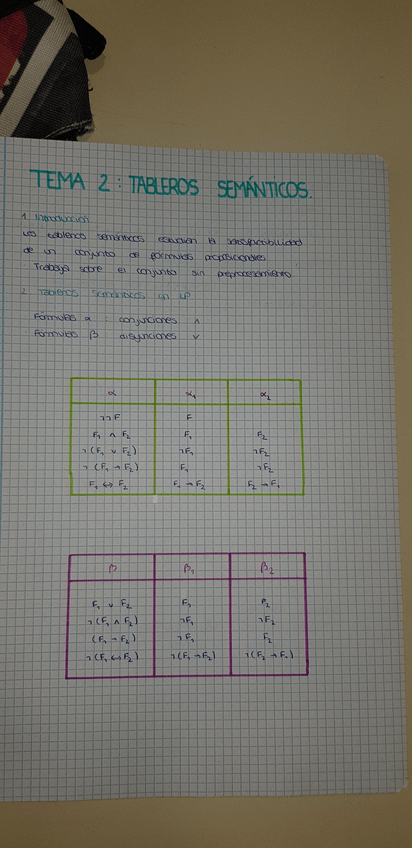 TEMA 2: TABLEROS SEMÁNTICOS.
1. Introducción
Los tableros semánticos estudian la satisfacibilidad
de un conjunto de fórmulas proposicionales.
Trabaja sobre el conjunto sin preprocesamiento.
2. Tableros semánticos en LP
Fórmulas α : conjunciones ∧
Fórmulas β : disyunciones ∨
α α₁ α₂
¬¬F F
F₁ ∧ F₂ F₁ F₂
¬(F₁ ∨ F₂) ¬F₁ ¬F₂
¬(F₁ → F₂) F₁ ¬F₂
F₁ ↔ F₂ F₁ → F₂ F₂ → F₁
β β₁ β₂
F₁ ∨ F₂ F₁ F₂
¬(F₁ ∧ F₂) ¬F₁ ¬F₂
(F₁ → F₂) ¬F₁ F₂
¬(F₁ ↔ F₂) ¬(F₁ → F₂) ¬(F₂ → F₁)